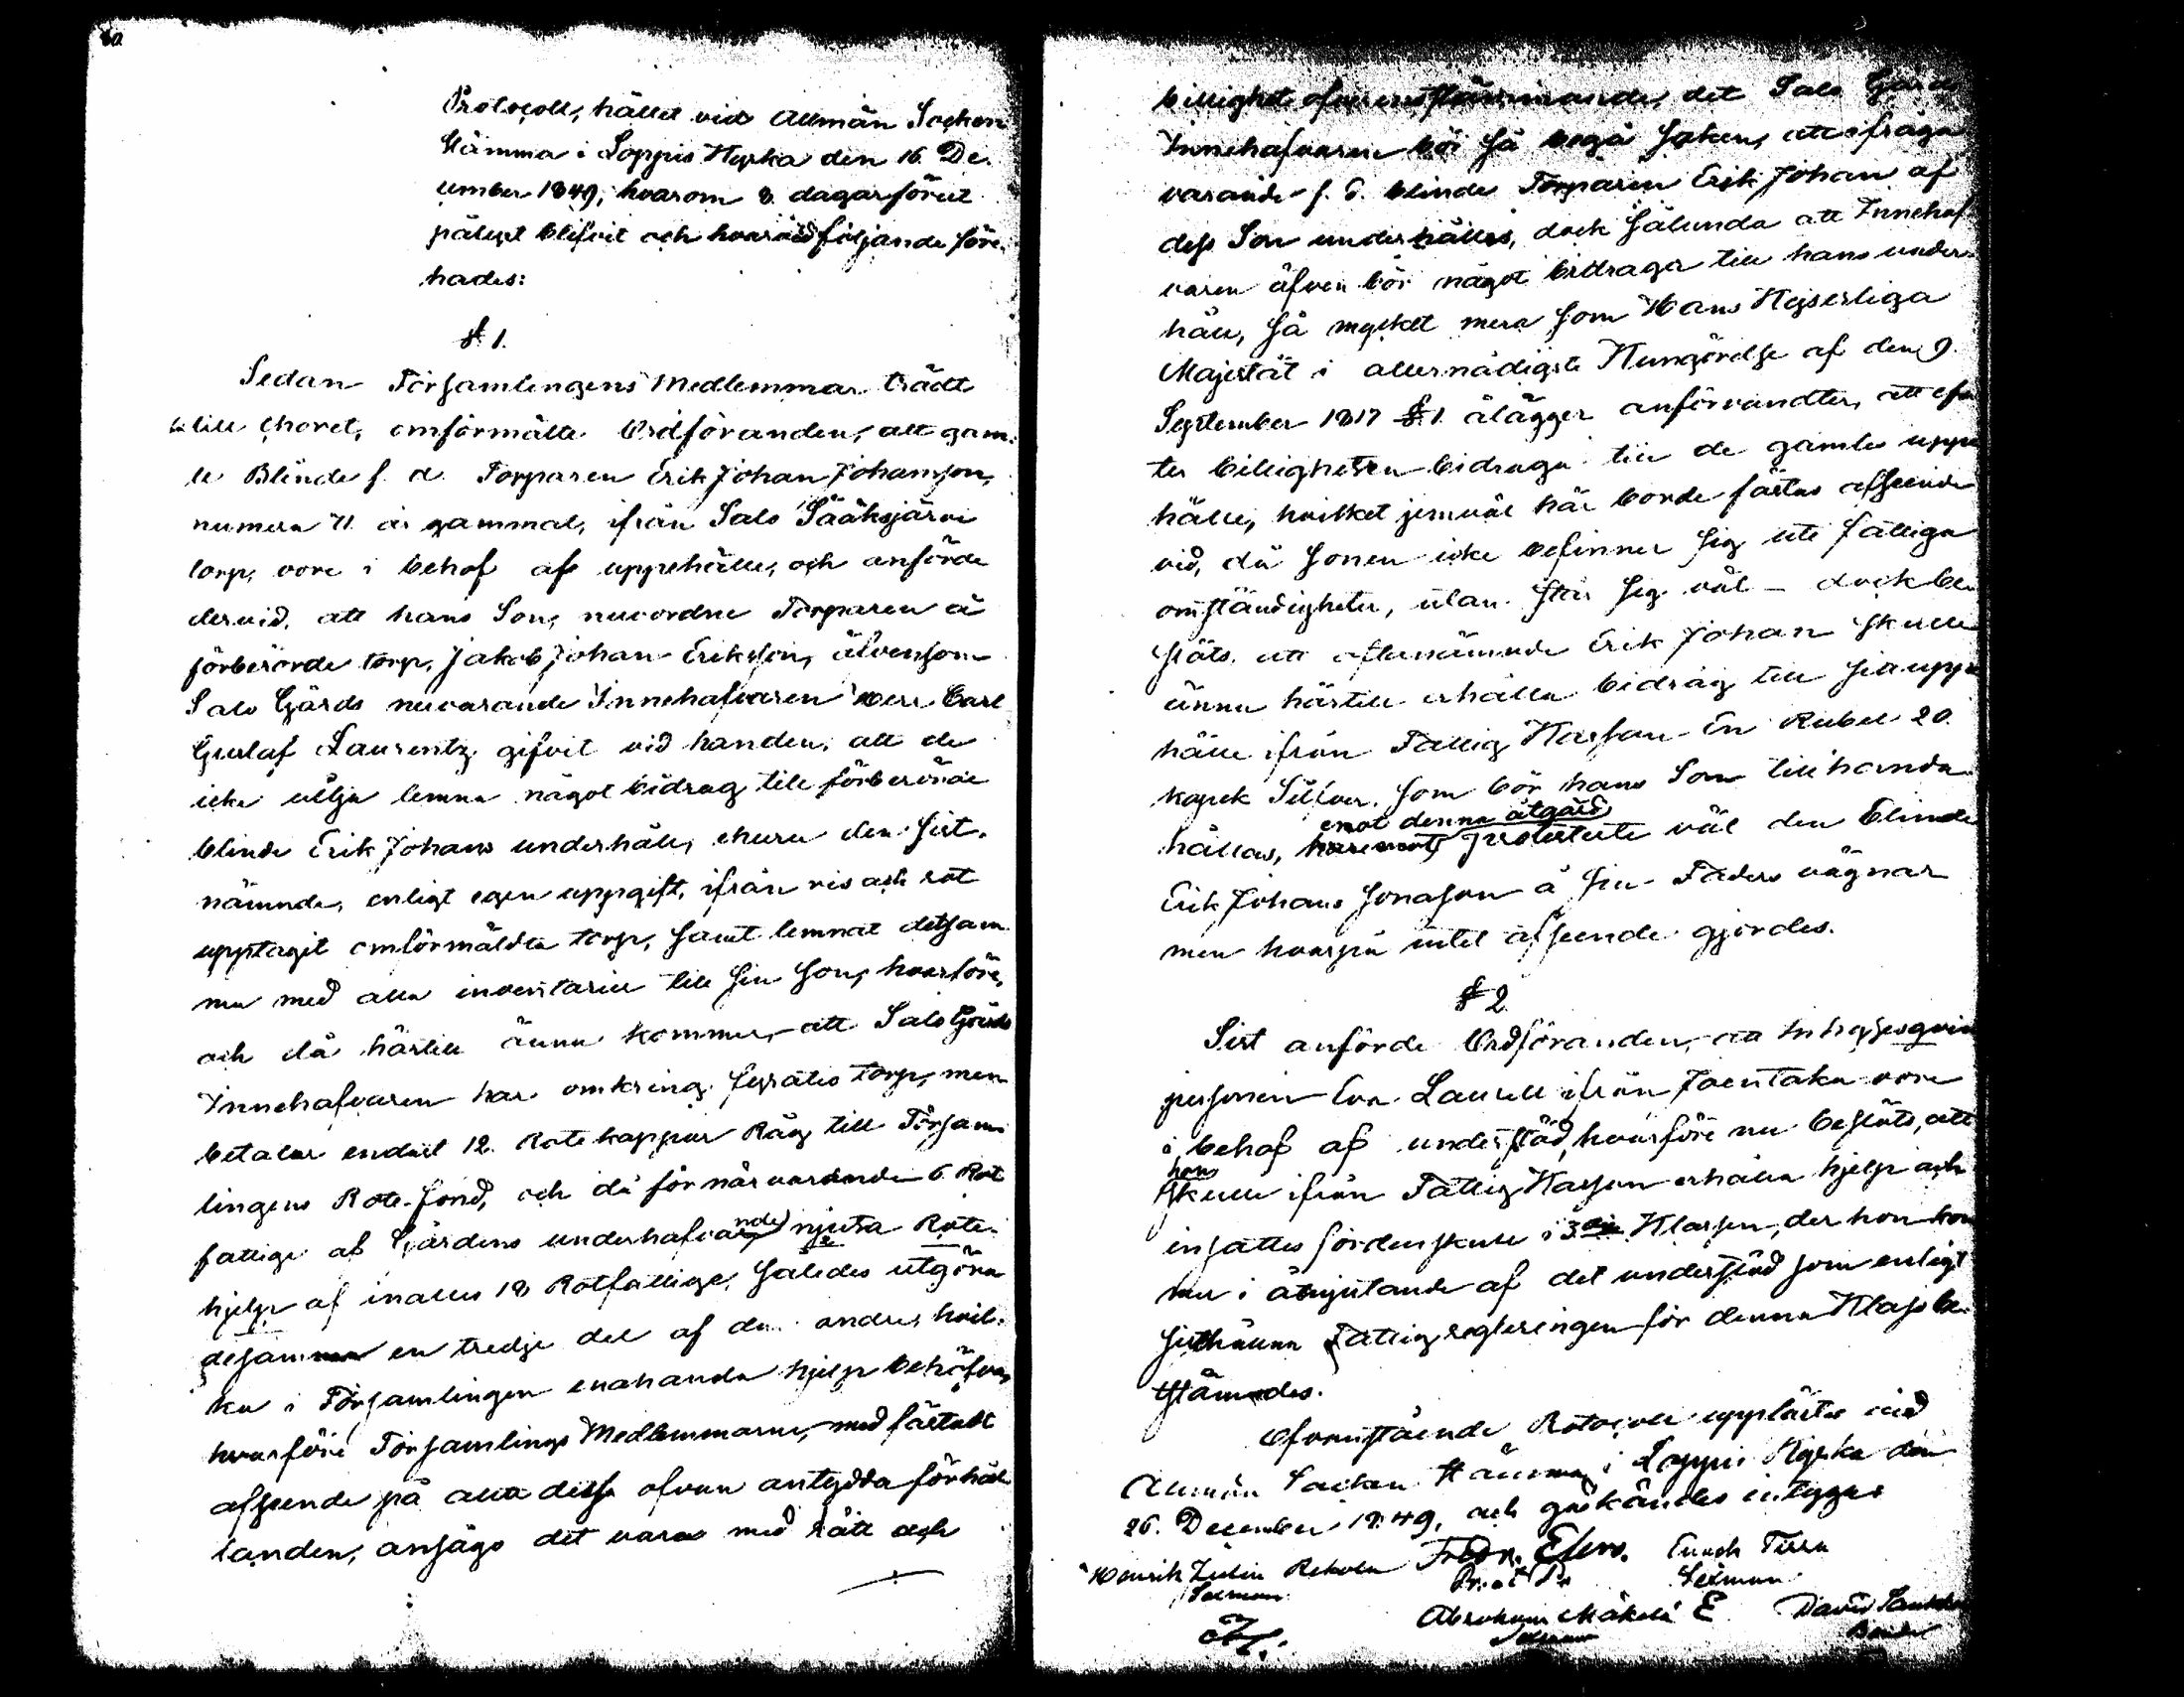 Protocoll, hållet vid Allmän Socken
Stämma i Loppis Kyrka den 16. De-
cember 1849, hvarom 8. dagar förut
pålyst blifvit och hvarvid följande före-
hades:
§ 1.
Sedan Församlingens Medlemmar trädt
till Choret, omförmälte Ordföranden, att gam-
le Blinde f. d. Torparen Erik Johan Johansson,
numera 71. år gammal, ifrån Salo Sääksjärvi
torp, vore i behof af uppehälle, och anförde
dervid, att hans Son, nuvordne Torparen å
förberörde torp, Jakob Johan Eriksson, äfvensom
Salo Gårds nuvarande Innehafvaren Herr Carl
Gustaf Laurentz gifvit vid handen, att de
icke vilja lemna något bidrag till förberörde
blinde Erik Johans underhåll, ehuru den sist-
nämnde, enligt egen uppgift, ifrån ris och rot
upptagit omförmäldta torp, samt lemnat detsam-
ma med alla inventarier till sin Son, hvarföre,
och då härtill ännu kommer, att Salo Gårds
Innehafvaren har omkring sexatio torp, men
betalar endast 12. Rotekappar Råg till Försam-
lingens Rote-fond, och då för närvarande 6. Rot
fattige af Gårdens underhafvande njuta Rote-
hjelp af inalles 18 Rotfattige, således utgöra
desamma en tredje del af de andre, hvil-
ka i Församlingen enahanda hjelp behöfva,
hvarföre Församlings Medlemmarne, med fästadt
afseende på alla dessa ofvan antydda förhål-
landen, ansågo det vara med rätt och
billighet öfverensstämmande, det Salo Gårds
Innehafvaren bör så begå saken, att ifråga
varande f. d. blinde Torparen Erik Johan af
dess Son underhålles, dock sålunda att Innehaf-
varen äfven bör något bidraga till hans under-
håll, så mycket mera som Hans Kejserliga
Majestät i allernådigste Kungörelse af den 9.
September 1817 § 1. ålägger anförvandter, att ef-
ter billigheten bidraga till de gamles uppe
hälle, hvilket jemväl här borde fästas afseende
vid, då Sonen icke befinner sig uti fattiga
omständigheter, utan står sig väl – dock be-
slöts, att oftanämnde Erik Johan skulle
ännu härtill erhålla bidrag till sin uppe
hälle ifrån Fattig Kassan En Rubel 20.
kopek Silfver, som bör hans Son tillhanda
emot denna åtgärd
hållas, protesterte väl den blinde
Erik Johans Sonason å sin Faders vägnar
men hvarpå intet afseende gjordes.
§ 2
Sist anförde Ordföranden, att Inhyses qvins
personen Eva Laurell ifrån Joentaka vore
i behof af understöd, hvarföre nu beslöts, att
hon
skulle ifrån Fattig Kassan erhålla hjelp och
insattes fördenskull i 3die Klassen, der hon kom
mer i åtnjutande af det understöd som enligt
sisthållna Fattigregleringen för denna Klass be-
stämdes.
Ofvanstående Protocoll uppläste vid
Allmän Socken Stämma i Loppis Kyrka den
26. December 1849, och godkändes intygas
Henrik Rekola Fredr. Elers. Enoch
Sexman. Sexman.
Abraham Mäkelä E David
Sexman Bonde